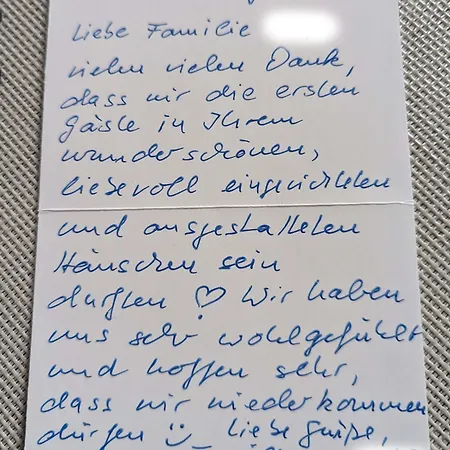 Liebe Familie
vielen vielen Dank,
dass wir die ersten
Gäste in Ihrem
wunderschönen,
liebevoll eingerichteten
und ausgestalteten
Häuschen sein
durften ♡ Wir haben
uns sehr wohlgefühlt
und hoffen sehr,
dass wir wiederkommen
dürfen :) Liebe Grüße,